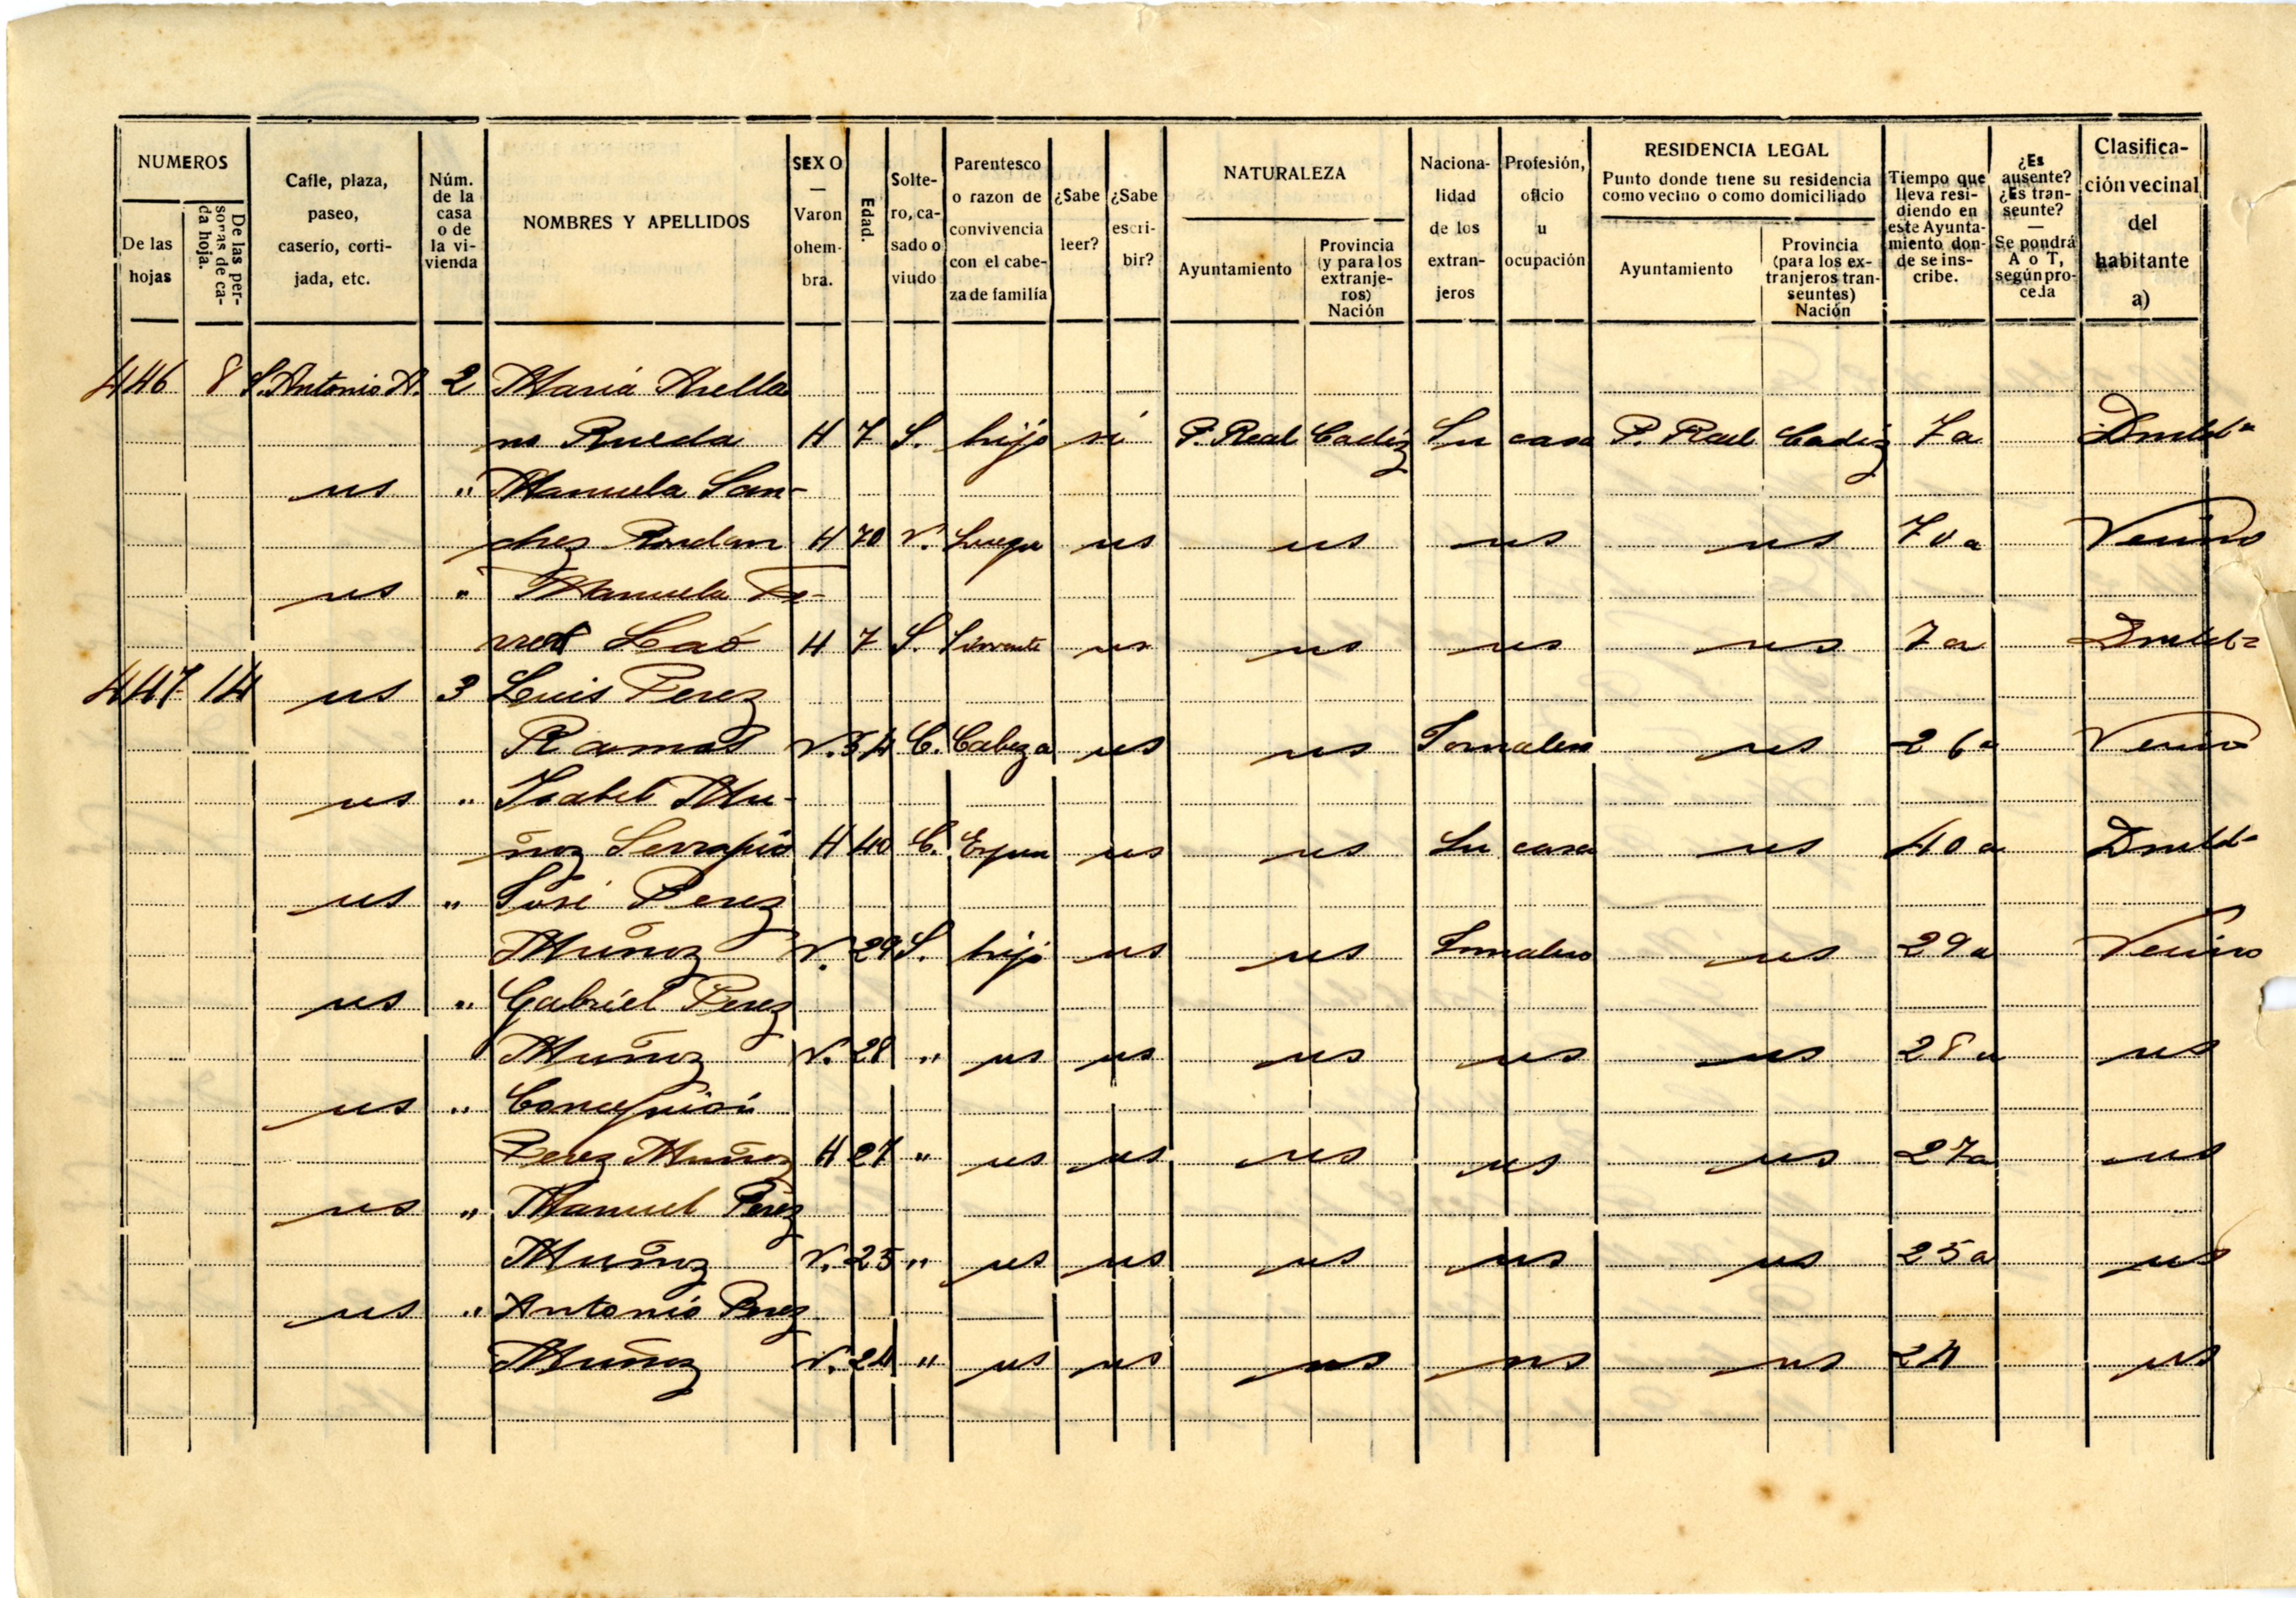 NUMEROS
De las hojas
De las personas de cada hoja.
Calle, plaza, paseo, caserio, cortijada, etc.
Núm. de la casa o de la vivienda
NOMBRES Y APELLIDOS
SEXO — Varon ohembra.
Edad.
Soltero, casado o viudo
Parentesco o razon de convivencia con el cabeza de familia
¿Sabe leer?
¿Sabe escribir?
NATURALEZA
Ayuntamiento
Provincia (y para los extranjeros) Nación
Nacionalidad de los extranjeros
Profesión, oficio u ocupación
RESIDENCIA LEGAL
Punto donde tiene su residencia como vecino o como domiciliado
Ayuntamiento
Provincia (para los extranjeros transeuntes) Nación
Tiempo que lleva residiendo en este Ayuntamiento donde se inscribe.
¿Es ausente? ¿Es transeunte? — Se pondrá A o T, según proceda
Clasificación vecinal del habitante a)
446 8 S. Antonio A. 2 Maria Arella
no Rueda H 7 S. hijo si P. Real Cadiz Su casa P. Real Cadiz 7 a
us " Manuela San-
chez H 70 V. us us us us 70 a Vecino
us " Manuela
H 7 S. Sirviente us us us us 7 a
447 14 us 3 Luis Perez
Ramos V. 54 C. Cabeza us us Jornalero us 26 a Vecino
us " Isabel Mu-
ñoz Serrapio H 40 C. us us Su casa us 40 a
us " José Perez
Muñoz V. 29 S. hijo us us Jornalero us 29 a Vecino
us " Gabriel Perez
Muñoz V. 28 " us us us us us 28 a us
us " Concepción
Perez Muñoz H 27 " us us us us us 27 a us
us " Manuel Perez
Muñoz V. 25 " us us us us us 25 a us
us " Antonio Perez
Muñoz V. 24 " us us us us us 24 us